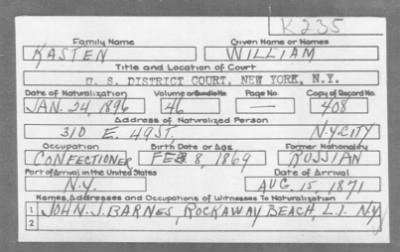 K235
Family Name Given Name or Names
KASTEN WILLIAM
Title and Location of Court
U. S. DISTRICT COURT, NEW YORK, N.Y.
Date of Naturalization Volume or Bundle No. Page No. Copy of Record No.
JAN. 24, 1896 46 — 408
Address of Naturalized Person
310 E. 49 ST. N.Y.CITY
Occupation Birth Date or Age Former Nationality
CONFECTIONER FEB 8, 1869 RUSSIAN
Port of Arrival in the United States Date of Arrival
N.Y. AUG. 15, 1871
Names, Addresses and Occupations of Witnesses To Naturalization
1 JOHN J. BARNES, ROCKAWAY BEACH, L.I. N.Y.
2